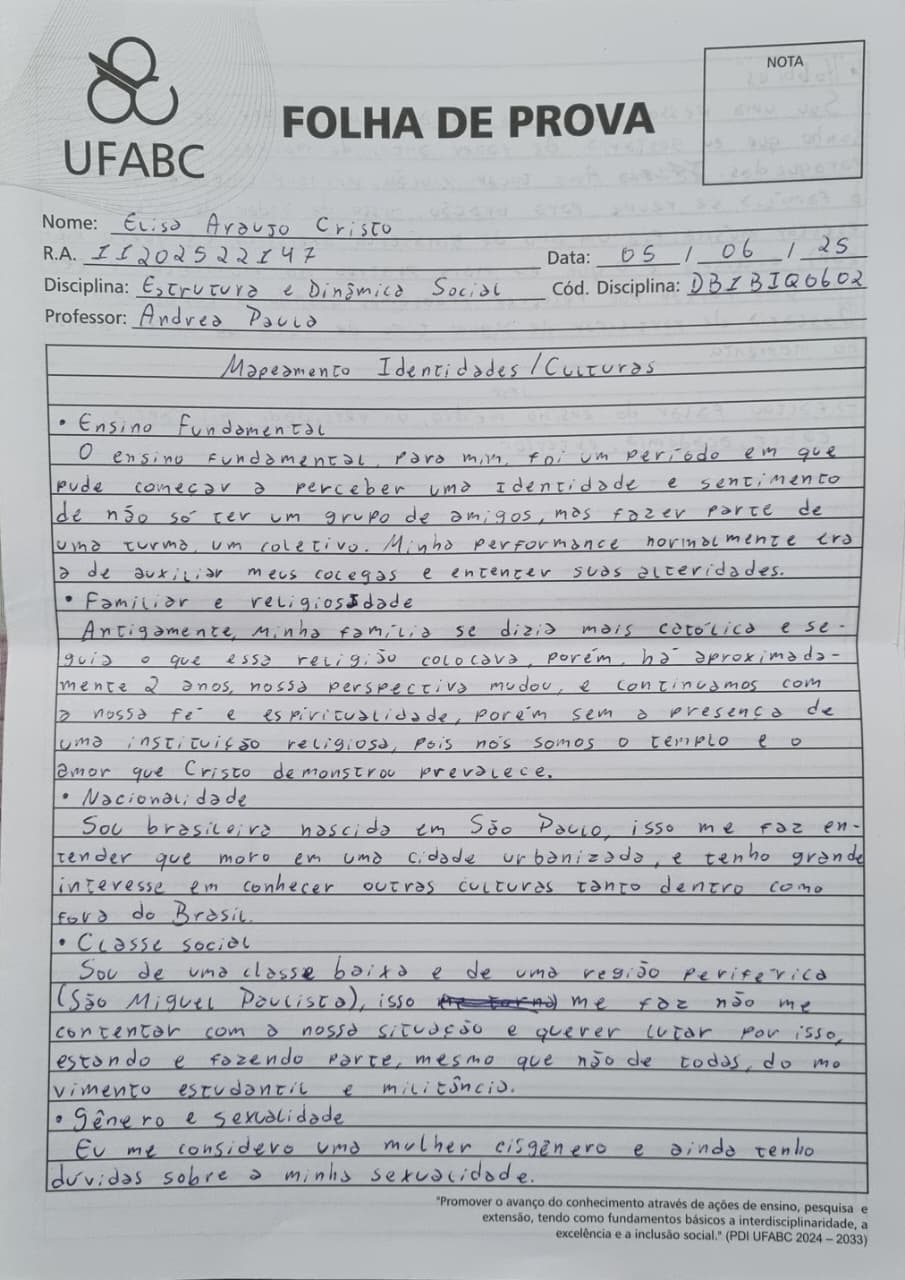 UFABC
FOLHA DE PROVA
NOTA
Nome: Elisa Araujo Cristo
R.A. II202522147
Data: 05 / 06 / 25
Disciplina: Estrutura e Dinâmica Social
Cód. Disciplina: DBIBIQ0602
Professor: Andrea Paula
Mapeamento Identidades/Culturas
• Ensino Fundamental
O ensino fundamental, para mim, foi um período em que
pude começar a perceber uma identidade e sentimento
de não só ter um grupo de amigos, mas fazer parte de
uma turma, um coletivo. Minha performance normalmente era
a de auxiliar meus colegas e entender suas alteridades.
• Familiar e religiosidade
Antigamente, minha família se dizia mais católica e se-
guia o que essa religião colocava, porém, há aproximada-
mente 2 anos, nossa perspectiva mudou, e continuamos com
a nossa fé e espiritualidade, porém sem a presença de
uma instituição religiosa, pois nós somos o templo e o
amor que Cristo demonstrou prevalece.
• Nacionalidade
Sou brasileira nascida em São Paulo, isso me faz en-
tender que moro em uma cidade urbanizada, e tenho grande
interesse em conhecer outras culturas tanto dentro como
fora do Brasil.
• Classe social
Sou de uma classe baixa e de uma região periférica
(São Miguel Paulista), isso me faz não me
contentar com a nossa situação e querer lutar por isso,
estando e fazendo parte, mesmo que não de todas, do mo
vimento estudantil e militância.
• Gênero e sexualidade
Eu me considero uma mulher cisgênero e ainda tenho
dúvidas sobre a minha sexualidade.
"Promover o avanço do conhecimento através de ações de ensino, pesquisa e
extensão, tendo como fundamentos básicos a interdisciplinaridade, a
excelência e a inclusão social." (PDI UFABC 2024 – 2033)